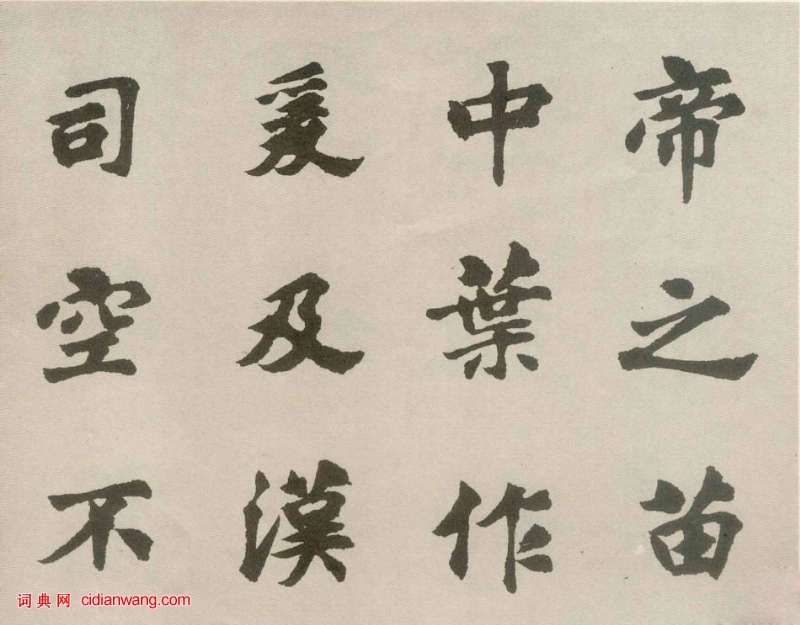 帝之苗
中葉作
爰及漢
司空不
词典网 cidianwang.com